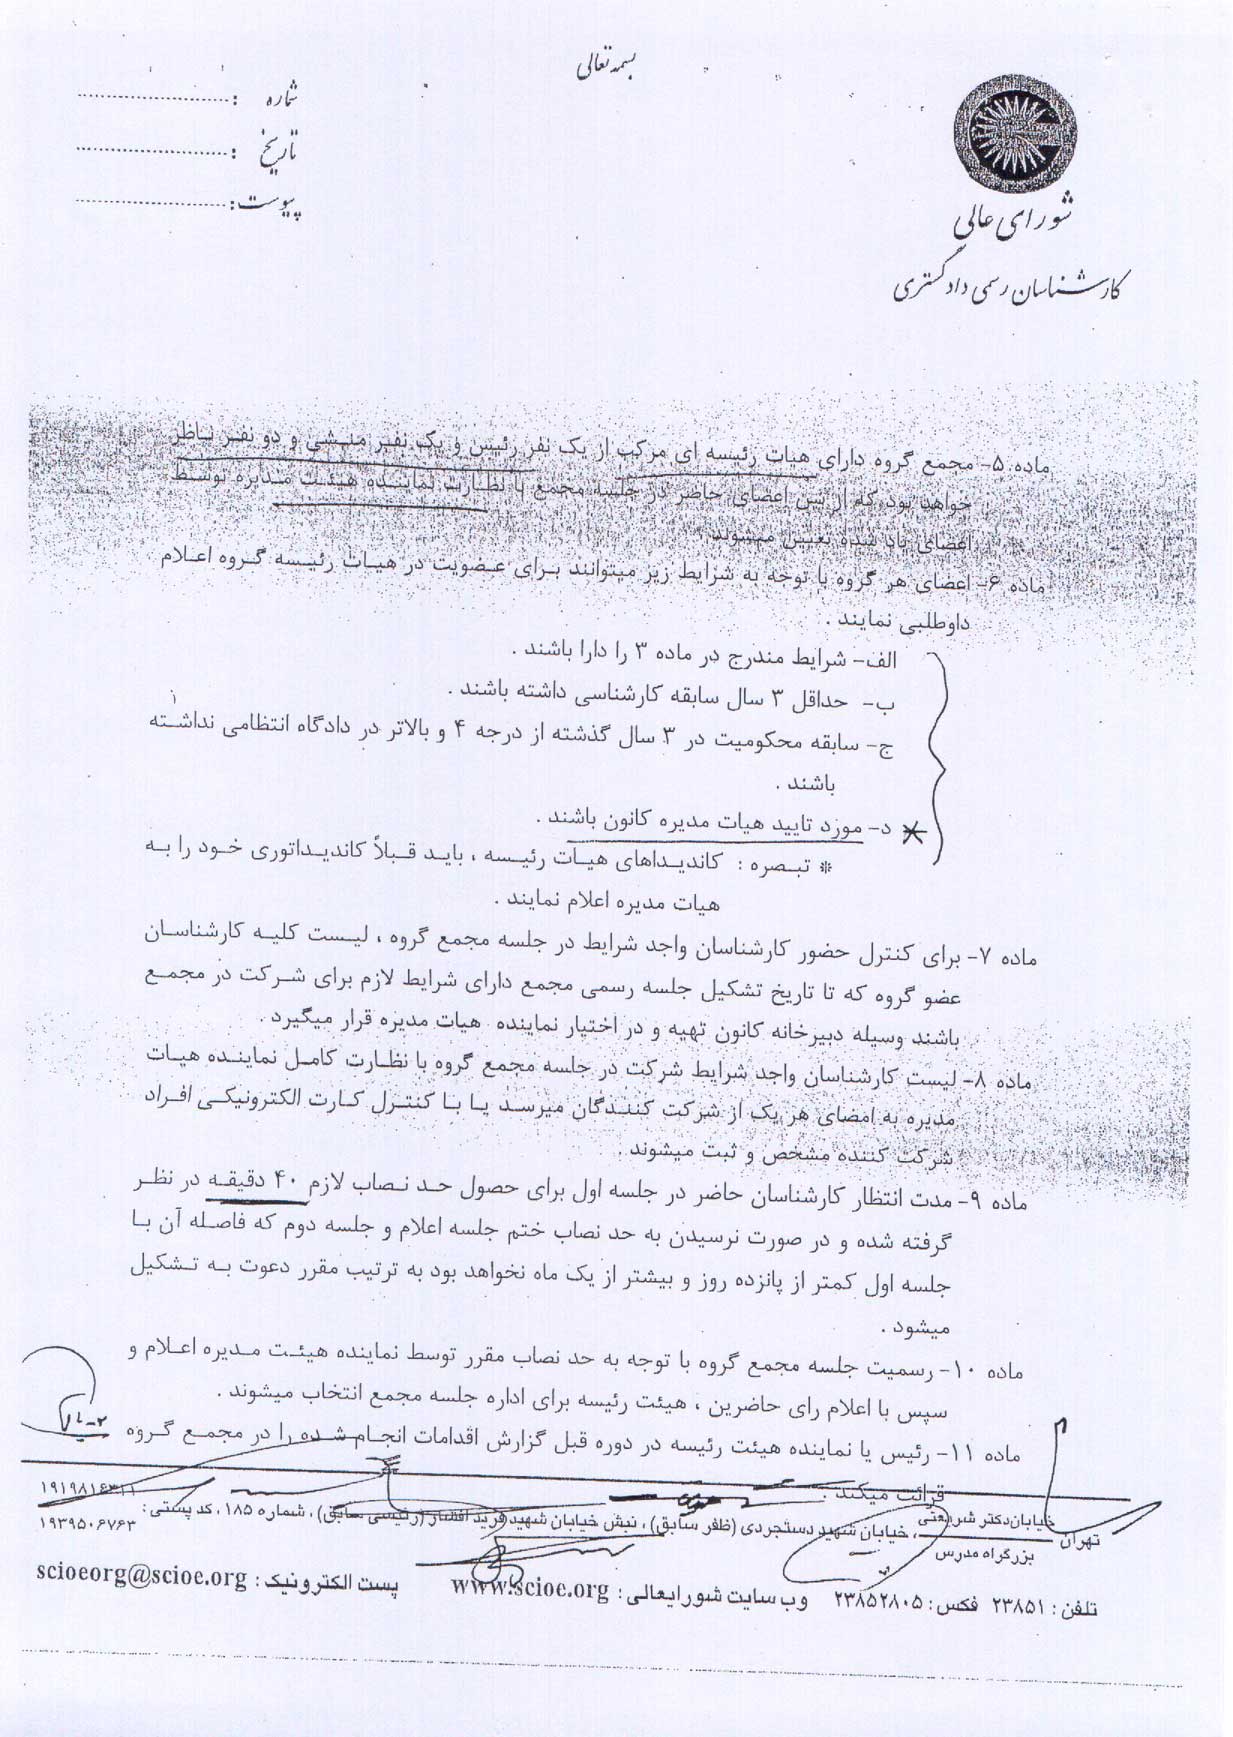 بسمه تعالی
شماره : ........................
تاریخ : ........................
پیوست: ........................
شورای عالی
کارشناسان رسمی دادگستری
ماده ۵- مجمع گروه دارای هیات رئیسه ای مرکب از یک نفر رئیس و یک نفر منشی و دو نفر ناظر
خواهد بود که از بین اعضای حاضر در جلسه مجمع با نظارت نماینده هیئت مدیره توسط
اعضای یاد شده تعیین میشوند .
ماده ۶- اعضای هر گروه با توجه به شرایط زیر میتوانند برای عضویت در هیات رئیسه گروه اعلام
داوطلبی نمایند .
الف- شرایط مندرج در ماده ۳ را دارا باشند .
ب- حداقل ۳ سال سابقه کارشناسی داشته باشند .
ج- سابقه محکومیت در ۳ سال گذشته از درجه ۴ و بالاتر در دادگاه انتظامی نداشته
باشند .
د- مورد تایید هیات مدیره کانون باشند .
* تبصره : کاندیداهای هیات رئیسه ، باید قبلاً کاندیداتوری خود را به
هیات مدیره اعلام نمایند .
ماده ۷- برای کنترل حضور کارشناسان واجد شرایط در جلسه مجمع گروه ، لیست کلیه کارشناسان
عضو گروه که تا تاریخ تشکیل جلسه رسمی مجمع دارای شرایط لازم برای شرکت در مجمع
باشند وسیله دبیرخانه کانون تهیه و در اختیار نماینده هیات مدیره قرار میگیرد .
ماده ۸- لیست کارشناسان واجد شرایط شرکت در جلسه مجمع گروه با نظارت کامل نماینده هیات
مدیره به امضای هر یک از شرکت کنندگان میرسد یا با کنترل کارت الکترونیکی افراد
شرکت کننده مشخص و ثبت میشوند .
ماده ۹- مدت انتظار کارشناسان حاضر در جلسه اول برای حصول حد نصاب لازم ۴۰ دقیقه در نظر
گرفته شده و در صورت نرسیدن به حد نصاب ختم جلسه اعلام و جلسه دوم که فاصله آن با
جلسه اول کمتر از پانزده روز و بیشتر از یک ماه نخواهد بود به ترتیب مقرر دعوت به تشکیل
میشود .
ماده ۱۰- رسمیت جلسه مجمع گروه با توجه به حد نصاب مقرر توسط نماینده هیئت مدیره اعلام و
سپس با اعلام رای حاضرین ، هیئت رئیسه برای اداره جلسه مجمع انتخاب میشوند .
ماده ۱۱- رئیس یا نماینده هیئت رئیسه در دوره قبل گزارش اقدامات انجام شده را در مجمع گروه
قرائت میکند .
تهران خیابان دکتر شریعتی
بزرگراه مدرس ، خیابان شهید دستجردی (ظفر سابق) ، نبش خیابان شهید فرید افشار (رئیسی سابق) ، شماره ۱۸۵ ، کد پستی : ۱۹۱۹۸۱۶۳۱۱
۱۹۳۹۵۰۶۷۶۳
تلفن : ۲۳۸۵۱ فکس : ۲۳۸۵۲۸۰۵ وب سایت شورایعالی : www.scioe.org پست الکترونیک : scioeorg@scioe.org